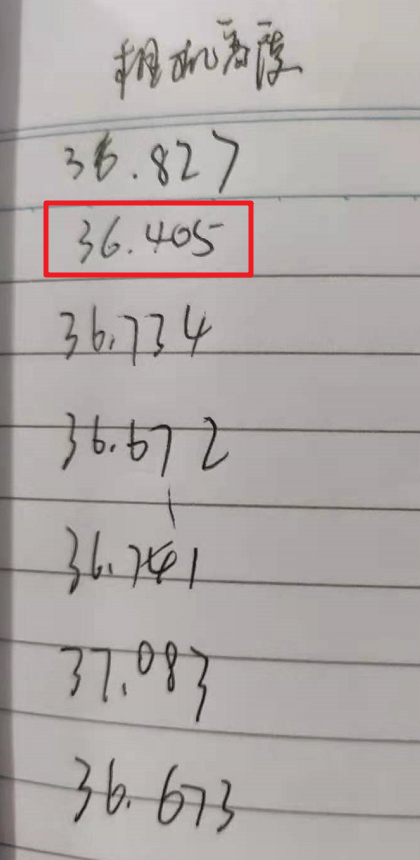 相机高度
36.827
36.405
36.734
36.672
36.741
37.083
36.673